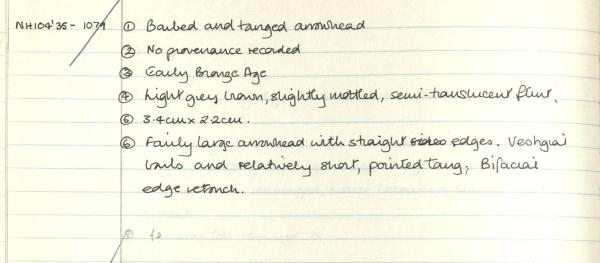 NH104'35 - 1079 ① Barbed and tanged arrowhead
② No provenance recorded
③ Early Bronze Age
④ Light grey brown, slightly mottled, semi-translucent flint.
⑤ 3.4cm x 2.2cm.
⑥ Fairly large arrowhead with straight sides edges. Vestigial
barbs and relatively short, pointed tang; Bifacial
edge retouch.